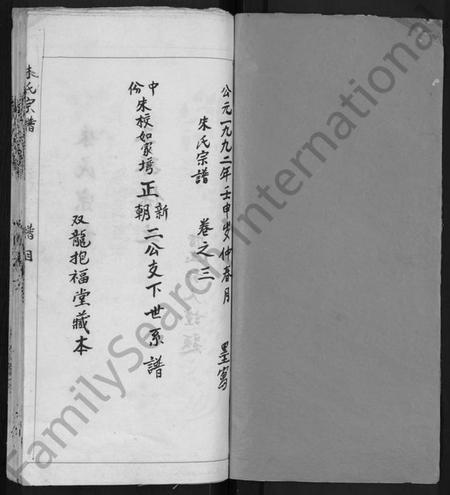 公元一九九二年壬申岁仲春月 墨写
朱氏宗谱 卷之三
中份朱校如冢塆正新朝二公支下世系譜
双龍抱福堂藏本
朱氏宗谱 譜目
FamilySearch International